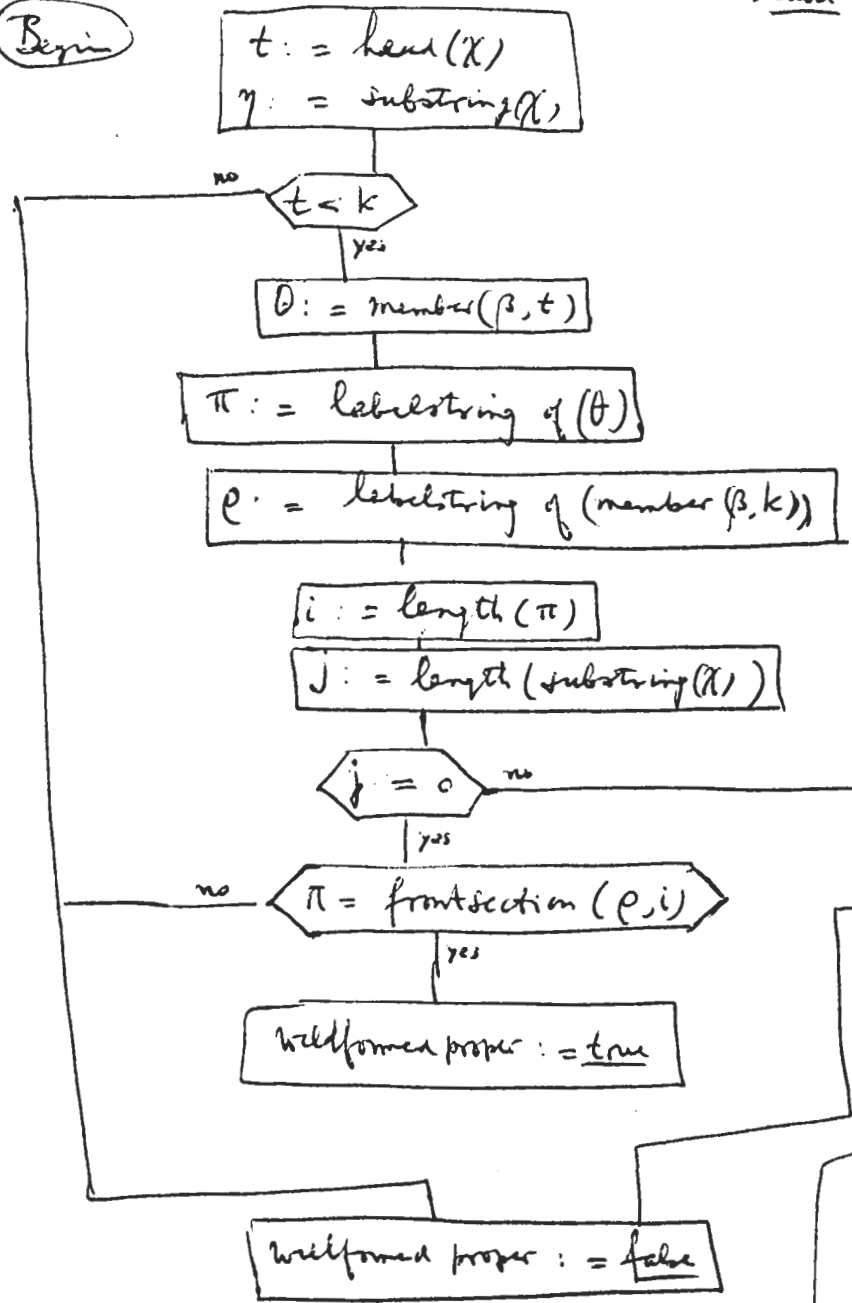 Begin
t := head(χ)
η := substring(χ,
no
t < k
yes
θ := member(β, t)
π := labelstring of (θ)
ρ := labelstring of (member(β, k))
i := length(π)
j := length(substring(χ, )
j = 0
no
yes
π = frontsection(ρ, i)
no
yes
wellformed proper := true
wellformed proper := false